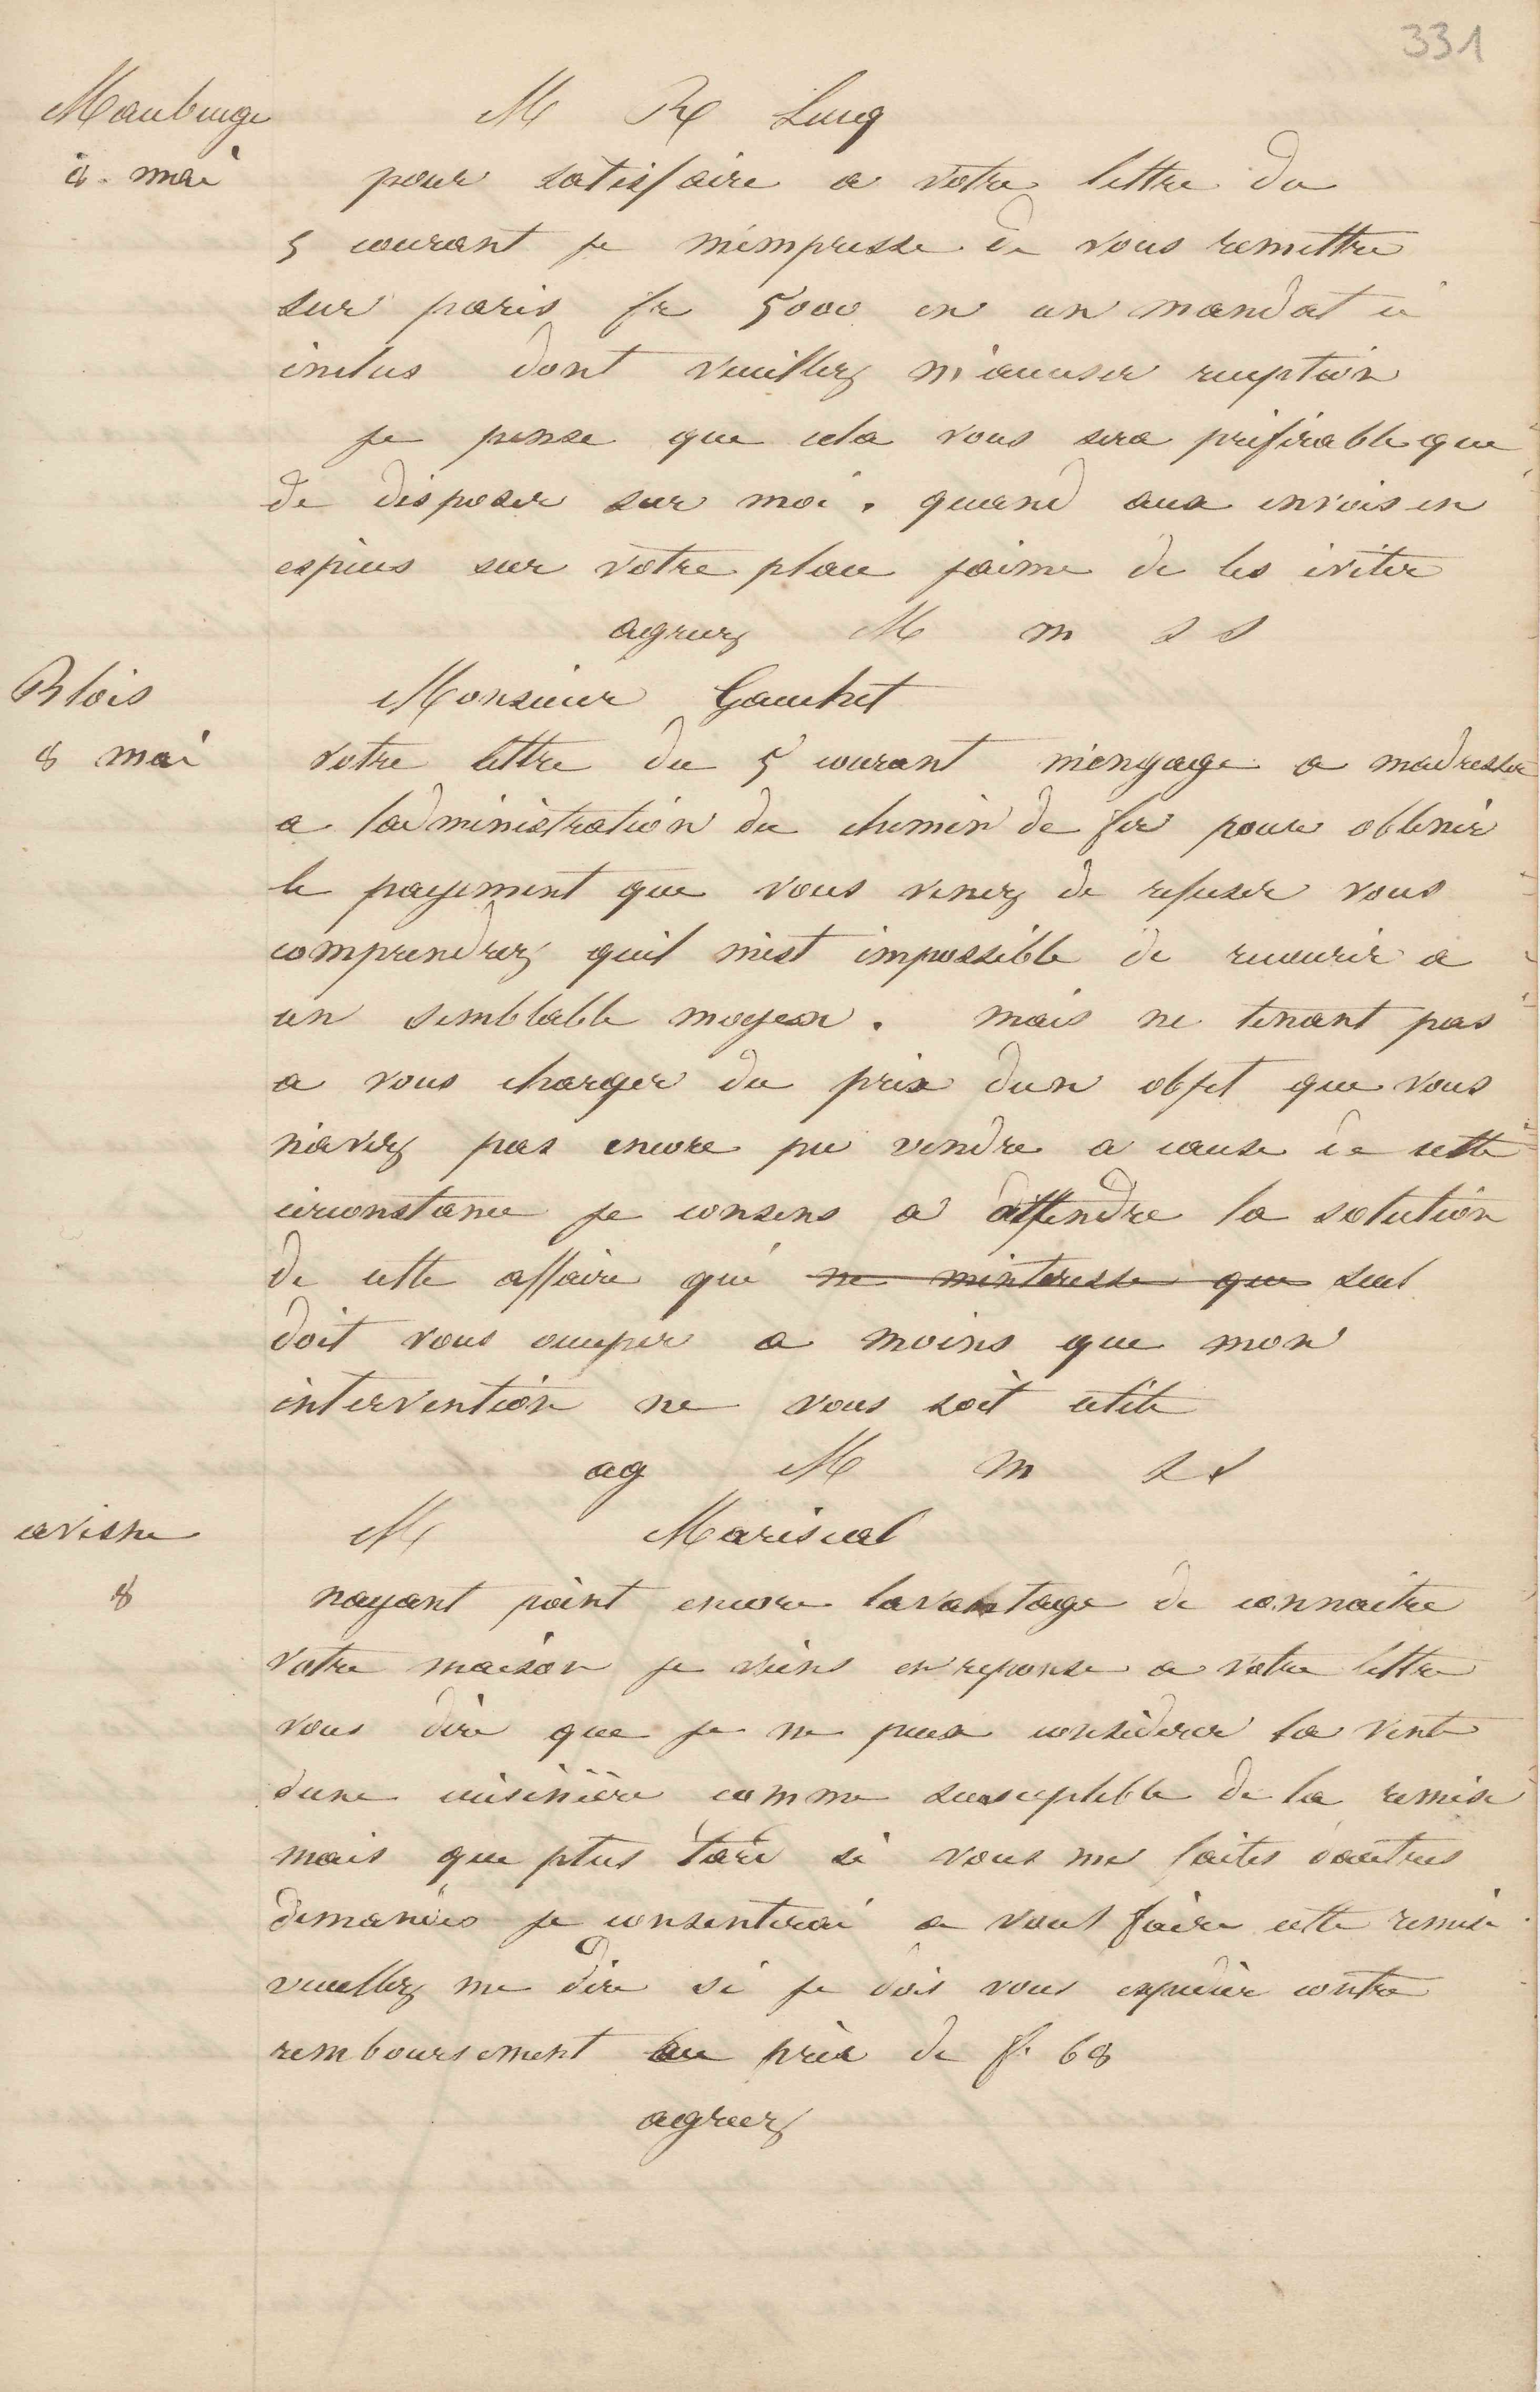 331
Maubeuge
M R Lucq
8 mai
pour satisfaire a votre lettre du
5 courant je m'empresse de vous remettre
sur paris fr 5000 en un mandat ci
inclus dont veuillez m'accuser reception
je pense que cela vous sera préférable que
de disposer sur moi . quand aux envois en
espèces sur votre place jaime de les éviter
agreez M m s s
Blois
Monsieur Gauchet
8 mai
votre lettre du 5 courant m'engage a madresser
a ladministration du chemin de fer pour obtenir
le payement que vous venez de refuser vous
comprendrez quil m'est impossible de recourir a
un semblable moyen . mais ne tenant pas
a vous charger du prix dun objet que vous
n'avez pas encore pu vendre a cause de cette
circonstance je consens a attendre la solution
de cette affaire qui ne minteresse que seul
doit vous occuper a moins que mon
intervention ne vous soit utile
ag M m s s
avesne
M Mariscal
8
nayant point encore lavantage de connaitre
votre maison je viens en reponse a votre lettre
vous dire que je ne peux considerer la vente
dune cuisinière comme susceptible de la remise
mais que plus tard si vous me faites dautres
demandes je consenterai a vous faire cette remise .
veuillez me dire si je dois vous expedier contre
remboursement au prix de f. 68
agreez